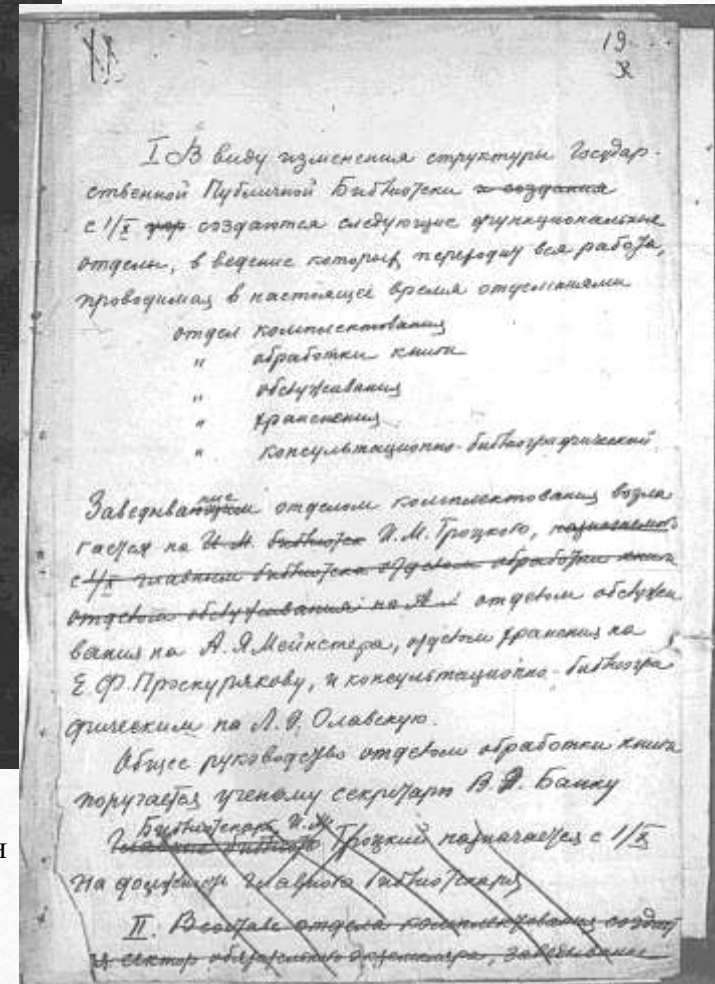 19
I В виду изменения структуры Государ-
ственной Публичной Библиотеки и создания
с 1/X создаются следующие функциональные
отделы, в ведение которых переходит вся работа,
проводимая в настоящее время отделениями
отдел комплектования
" обработки книги
" обслуживания
" хранения
" консультационно-библиографический.
Заведывание отделом комплектования возла
гается на И. М. Троцкого, назначаемого
с 1/X главным библиотека отделом обработки книги
отделом обслуживания на А. отделом обслужи
вания на А. Я Мейнстера, отделом хранения на
Е. Ф. Проскурякову, и консультационно-библиогра
фическим на Л. Ф. Олавскую.
Общее руководство отделом обработки книги
поручается ученому секретарю В. Э. Банку
Библиотекарь И. М.
Троцкий назначается с 1/X
на должность главного библиотекаря
II. В составе отдела комплектования создает
ся сектор обязательного экземпляра, заведывание
я